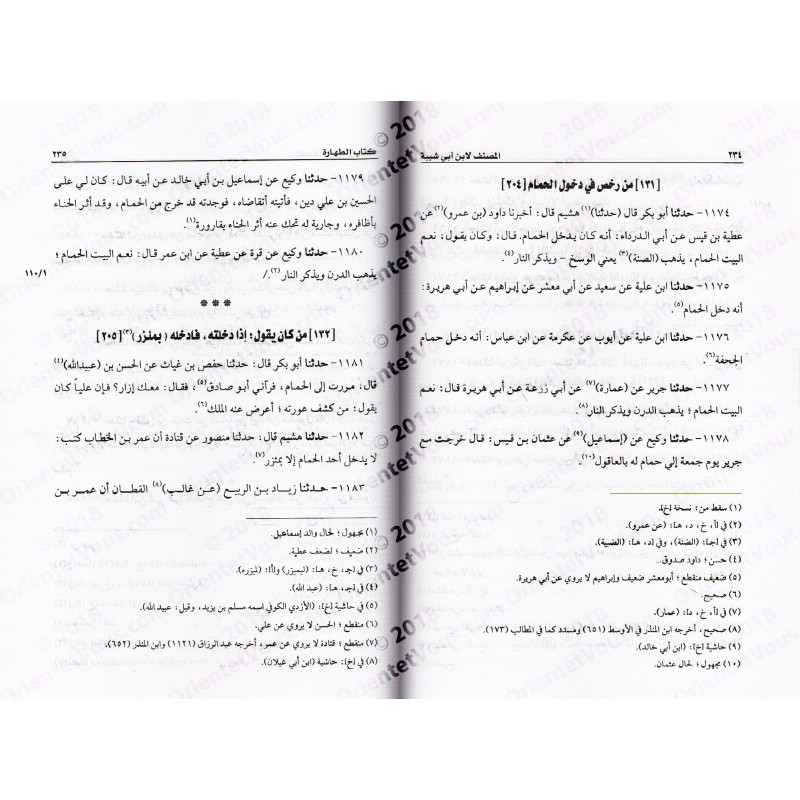 ٢٣٤ المصنف لابن أبي شيبة
[١٣١] من رخص في دخول الحمام [٢٠٤]
١١٧٤- حدثنا أبو بكر قال (حدثنا)(١) هشيم قال: أخبرنا داود (بن عمرو)(٢) عن
عطية بن قيس عن أبي الدرداء: أنه كان يدخل الحمام. قال: وكان يقول: نعم
البيت الحمام، يذهب (الصنة)(٣) يعني الوسخ - ويذكر النار(٤).
١١٧٥- حدثنا ابن علية عن سعيد عن أبي معشر عن إبراهيم عن أبي هريرة:
أنه دخل الحمام(٥).
١١٧٦- حدثنا ابن علية عن أيوب عن عكرمة عن ابن عباس: أنه دخل حمام
الجحفة(٦).
١١٧٧- حدثنا جرير عن (عمارة)(٧) عن أبي زرعة عن أبي هريرة قال: نعم
البيت الحمام؛ يذهب الدرن ويذكر النار(٨).
١١٧٨- حدثنا وكيع عن (إسماعيل)(٩) عن عثمان بن قيس: قال خرجت مع
جرير يوم جمعة إلى حمام له بالعاقول(١٠).
(١) سقط من: نسخة [خ].
(٢) في [أ، خ، د، هـ]: (عن عمرو).
(٣) في [جـ]: (الضنة)، وفي [د، هـ]: (الضبية).
(٤) حسن؛ داود صدوق.
(٥) ضعيف منقطع؛ أبومعشر ضعيف وإبراهيم لا يروي عن أبي هريرة.
(٦) صحيح.
(٧) في [أ، خ، د]: (عمار).
(٨) صحيح، أخرجه ابن المنذر في الأوسط (٦٥١) ومسدد كما في المطالب (١٧٣).
(٩) حاشية [خ]: (ابن أبي خالد).
(١٠) مجهول؛ لحال عثمان.
كتاب الطهارة ٢٣٥
١١٧٩- حدثنا وكيع عن إسماعيل بن أبي خالد عن أبيه قال: كان لي على
الحسين بن علي دين، فأتيته أتقاضاه، فوجدته قد خرج من الحمام، وقد أثر الحناء
بأظافره، وجارية له تحك عنه أثر الحناء بقارورة(١).
١١٨٠- حدثنا وكيع عن قرة عن عطية عن ابن عمر قال: نعم البيت الحمام؛
يذهب الدرن ويذكر النار(٢)./ ١١٠/١
***
[١٣٢] من كان يقول: إذا دخلته، فادخله (بمئزر)(٣) [٢٠٥]
١١٨١- حدثنا أبو بكر قال: حدثنا حفص بن غياث عن الحسن بن (عبيدالله)(٤)
قال: مررت إلى الحمام، فرآني أبو صادق(٥)، فقال: معك إزار؟ فإن علياً كان
يقول: من كشف عورته؛ أعرض عنه الملك(٦).
١١٨٢- حدثنا هشيم قال: حدثنا منصور عن قتادة أن عمر بن الخطاب كتب:
لا يدخل أحد الحمام إلا بمئزر(٧).
١١٨٣- حدثنا زياد بن الربيع (عن غالب)(٨) القطان أن عمر بن
(١) مجهول؛ لحال والد إسماعيل.
(٢) ضعيف؛ لضعف عطية.
(٣) في [جـ، خ، هـ]: (ليميزر) و[أ]: (ليزره).
(٤) في [جـ، هـ]: (عبد الله).
(٥) في حاشية [خ]: (الأزدي الكوفي اسمه مسلم بن يزيد، وقيل: عبيد الله).
(٦) منقطع؛ الحسن لا يروي عن علي.
(٧) منقطع؛ قتادة لا يروي عن عمر، أخرجه عبد الرزاق (١١٢١) وابن المنذر (٦٥٢).
(٨) في [خ]: حاشية (ابن أبي غيلان).
© 2018
OrientetVous.com